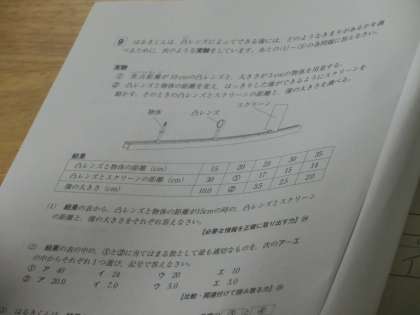 9 はるきくんは、凸レンズによってできる像には、どのようなきまりがあるかを調
べるために、次のような実験をしています。あとの(1)~(3)の各問題に答えなさい。
実験
① 焦点距離が10cmの凸レンズと、大きさが5cmの物体を用意する。
② 凸レンズと物体の距離を変え、はっきりした像ができるようにスクリーンを
動かす。そのときの凸レンズとスクリーンの距離と、像の大きさを調べる。
物体 凸レンズ スクリーン
結果
凸レンズと物体の距離 (cm) 15 20 25 30 35
凸レンズとスクリーンの距離 (cm) 30 ① 17 15 14
像の大きさ (cm) 10.0 ② 3.5 2.5 2.0
(1) 結果の表から、凸レンズと物体の距離が15cmの時の、凸レンズとスクリーン
の距離と、像の大きさを答えなさい。
【必要な情報を正確に取り出す力】
(2) 結果の表の中の、①と②に当てはまる数として最も適切なものを、次のア~エ
の中からそれぞれ1つ選び、記号で答えなさい。
① ア 40 イ 24 ウ 20 エ 10
② ア 20.0 イ 7.0 ウ 5.0 エ 3.0
【比較・関連付けて読み取る力】